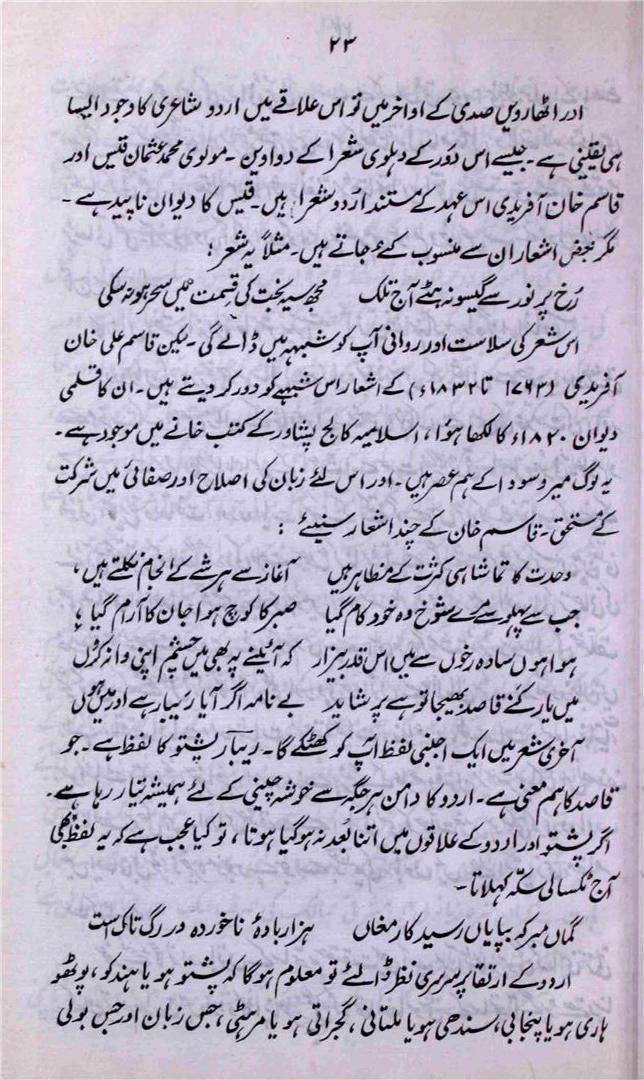 ۲۳
اور اٹھارویں صدی کے اواخر میں تو اس علاقے میں اردو شاعری کا وجود ایسا
ہی یقینی ہے۔ جیسے اس دَور کے دہلوی شعرا کے دواوین۔ مولوی محمد عثمان قیس اور
قاسم خان آفریدی اس عہد کے مستند اُردو شعرا ہیں۔ قیس کا دیوان ناپید ہے۔
مگر بعض اشعار ان سے منسوب کئے جاتے ہیں۔ مثلاً یہ شعر:
رُخِ پر نور سے گیسو نہ ہٹے آج تلک مجھ سیہ بخت کی قسمت میں سحر ہو نہ سکی
اس شعر کی سلاست اور روانی آپ کو شبہہ میں ڈالے گی۔ لیکن قاسم علی خان
آفریدی (۱۷۶۳ تا ۱۸۳۲ء) کے اشعار اس شبہے کو دور کر دیتے ہیں۔ ان کا قلمی
دیوان ۱۸۲۰ء کا لکھا ہوُا، اسلامیہ کالج پشاور کے کتب خانے میں موجود ہے۔
یہ لوگ میر و سودا کے ہم عصر ہیں۔ اور اس لئے زبان کی اصلاح اور صفائی میں شرکت
کے مستحق۔ قاسم خان کے چند اشعار سنیئے:
وحدت کا تماشا ہی کثرت کے مظاہر ہیں آغاز سے ہر شے کے انجام نکلتے ہیں،
جب سے پہلو سے مرے شوخ وہ خود کام گیا صبر کا کوچ ہوا جان کا آرام گیا
ہوا ہوں سادہ رخوں سے میں اس قدر بیزار کہ آئینے پہ بھی میں چشم اپنی وا نہ کروں
میں یار کنے قاصد بھیجا تو ہے پر شاید بے نامہ اگر آیا ریبار ہے اور میں ہوں
آخری شعر میں ایک اجنبی لفظ آپ کو کھٹکے گا۔ ریبار پشتو کا لفظ ہے۔ جو
قاصد کا ہم معنی ہے۔ اردو کا دامن ہر جگہ سے خوشہ چینی کے لئے ہمیشہ تیار رہا ہے۔
اگر پشتو اور اردو کے علاقوں میں اتنا بُعد نہ ہو گیا ہوتا، تو کیا عجب ہے کہ یہ لفظ بھی
آج ٹکسالی سکّہ کہلاتا۔
گماں مبر کہ بپایاں رسید کارِ مغاں ہزار بادۂ ناخوردہ در رگِ تاک است
اردو کے ارتقا پر سرسری نظر ڈالئے تو معلوم ہوگا کہ پشتو ہو یا ہندکو، پوٹھو
ہاری ہو یا پنجابی، سندھی ہو یا ملتانی، گجراتی ہو یا مرہٹی، جس زبان اور جس بولی